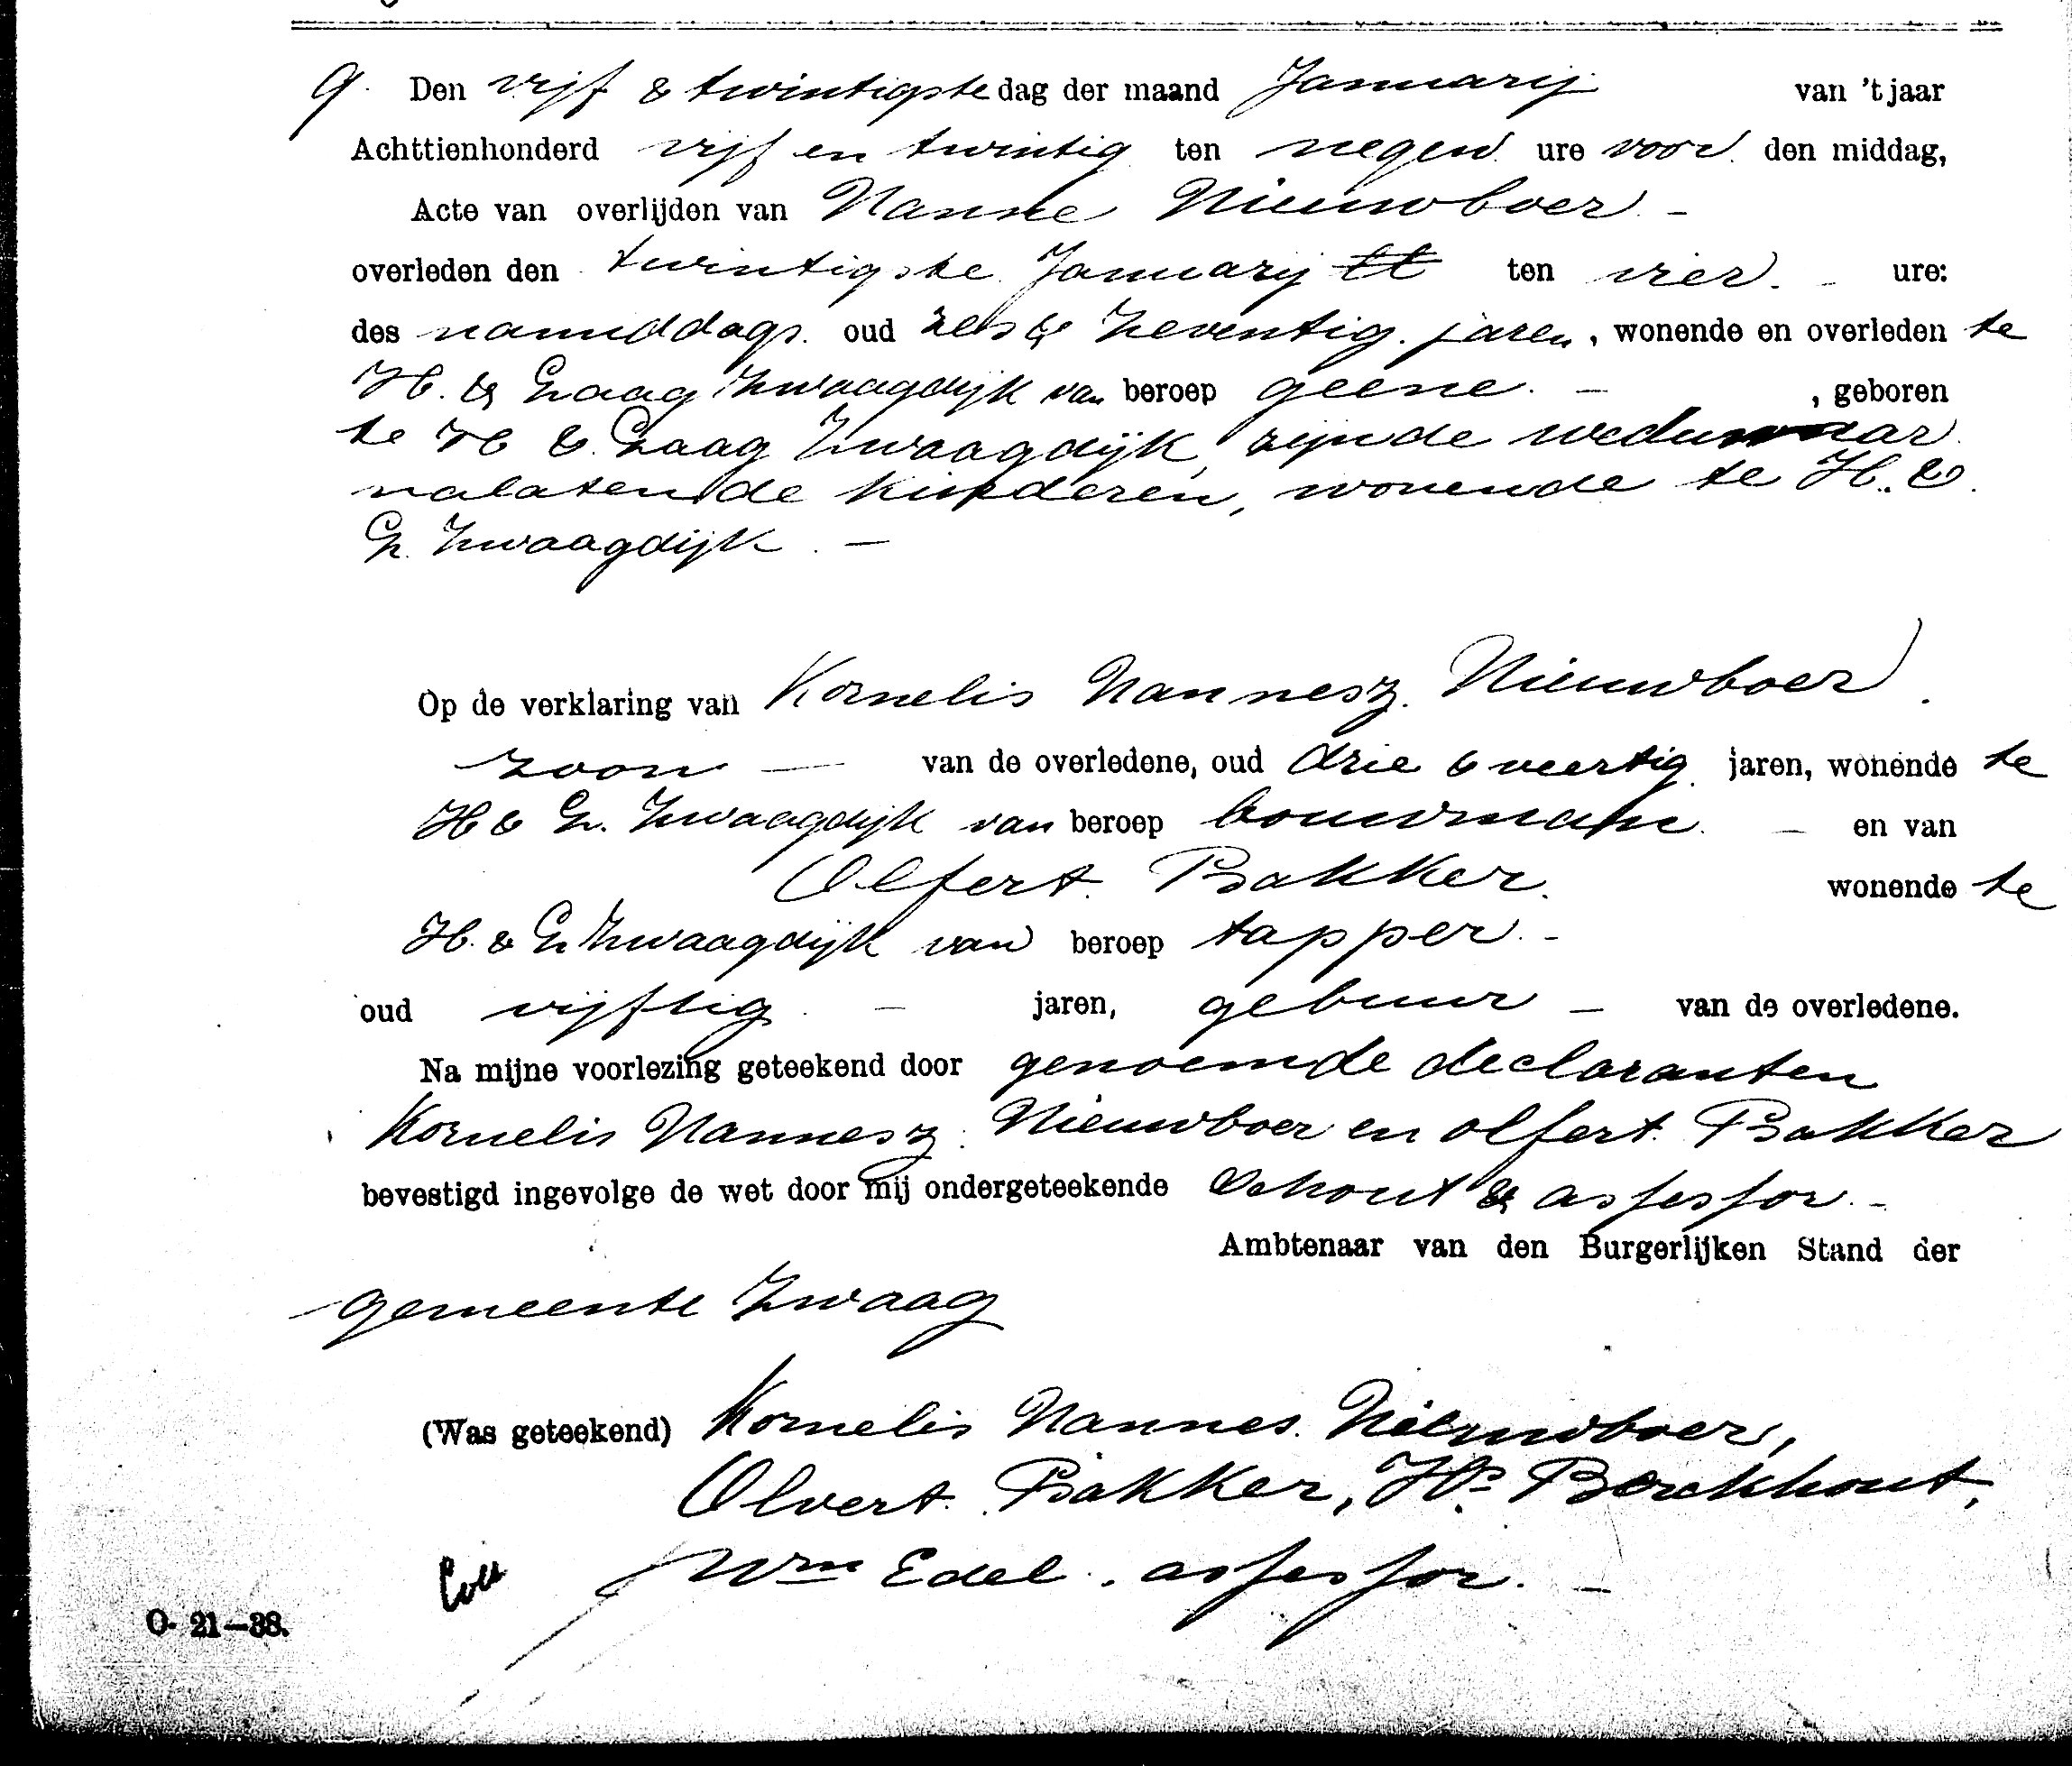 9. Den vijf & twintigste dag der maand Januarij van 't jaar
Achttienhonderd vijf en twintig ten negen ure voor den middag,
Acte van overlijden van Nanne Nieuwboer -
overleden den twintigste Januarij ll ten vier. - ure:
des namiddags. oud zes & zeventig jaren, wonende en overleden te
H. & Zwaagdijk van beroep geene. - , geboren
te H & Zwaagdijk, zijnde weduwnaar
nalatende kinderen, wonende te H. &
Zwaagdijk. -
Op de verklaring van Kornelis Nannesz. Nieuwboer.
zoon - van de overledene, oud drie & veertig jaren, wonende te
H & G. Zwaagdijk van beroep bouwman. - en van
Olfert Bakker. wonende te
H. & G Zwaagdijk van beroep tapper. -
oud vijftig - jaren, gebuur - van de overledene.
Na mijne voorlezing geteekend door genoemde declaranten
Kornelis Nannesz. Nieuwboer en Olfert Bakker
bevestigd ingevolge de wet door mij ondergeteekende Schout & assessor. -
Ambtenaar van den Burgerlijken Stand der
gemeente Zwaag
(Was geteekend) Kornelis Nannes. Nieuwboer,
Olvert Bakker, Hs Berckhout,
Wm Edel. assessor. -
O. 21-38.